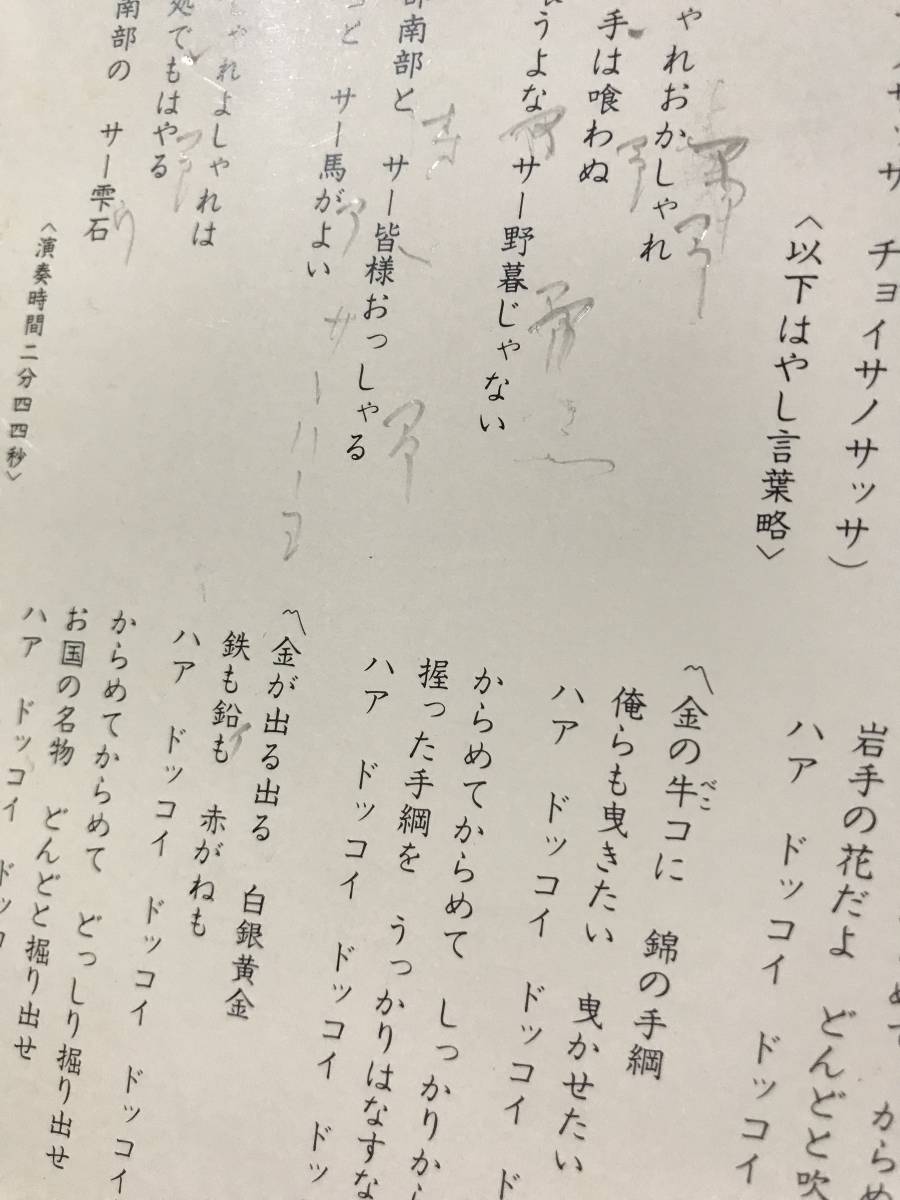 サッサ チョイサノサッサ）
〈以下はやし言葉略〉
ゃれおかしゃれ
手は喰わぬ
うよな サー野暮じゃない
部南部と サー皆様おっしゃる
サー馬がよい
ゃれよしゃれは
処でもはやる
南部の サー雫石
〈演奏時間二分四四秒〉
岩手の花だよ どんどと吹
ハア ドッコイ ドッコイ
〽金の牛コに 錦の手綱
べこ
俺らも曳きたい 曳かせたい
ハア ドッコイ ドッコイ ド
からめてからめて しっかりか
握った手綱を うっかりはなすな
ハア ドッコイ ドッコイ ドッ
〽金が出る出る 白銀黄金
鉄も鉛も 赤がねも
ハア ドッコイ ドッコイ ドッコイ
からめてからめて どっしり掘り出せ
お国の名物 どんどと掘り出せ
ハア ドッコイ ドッコ